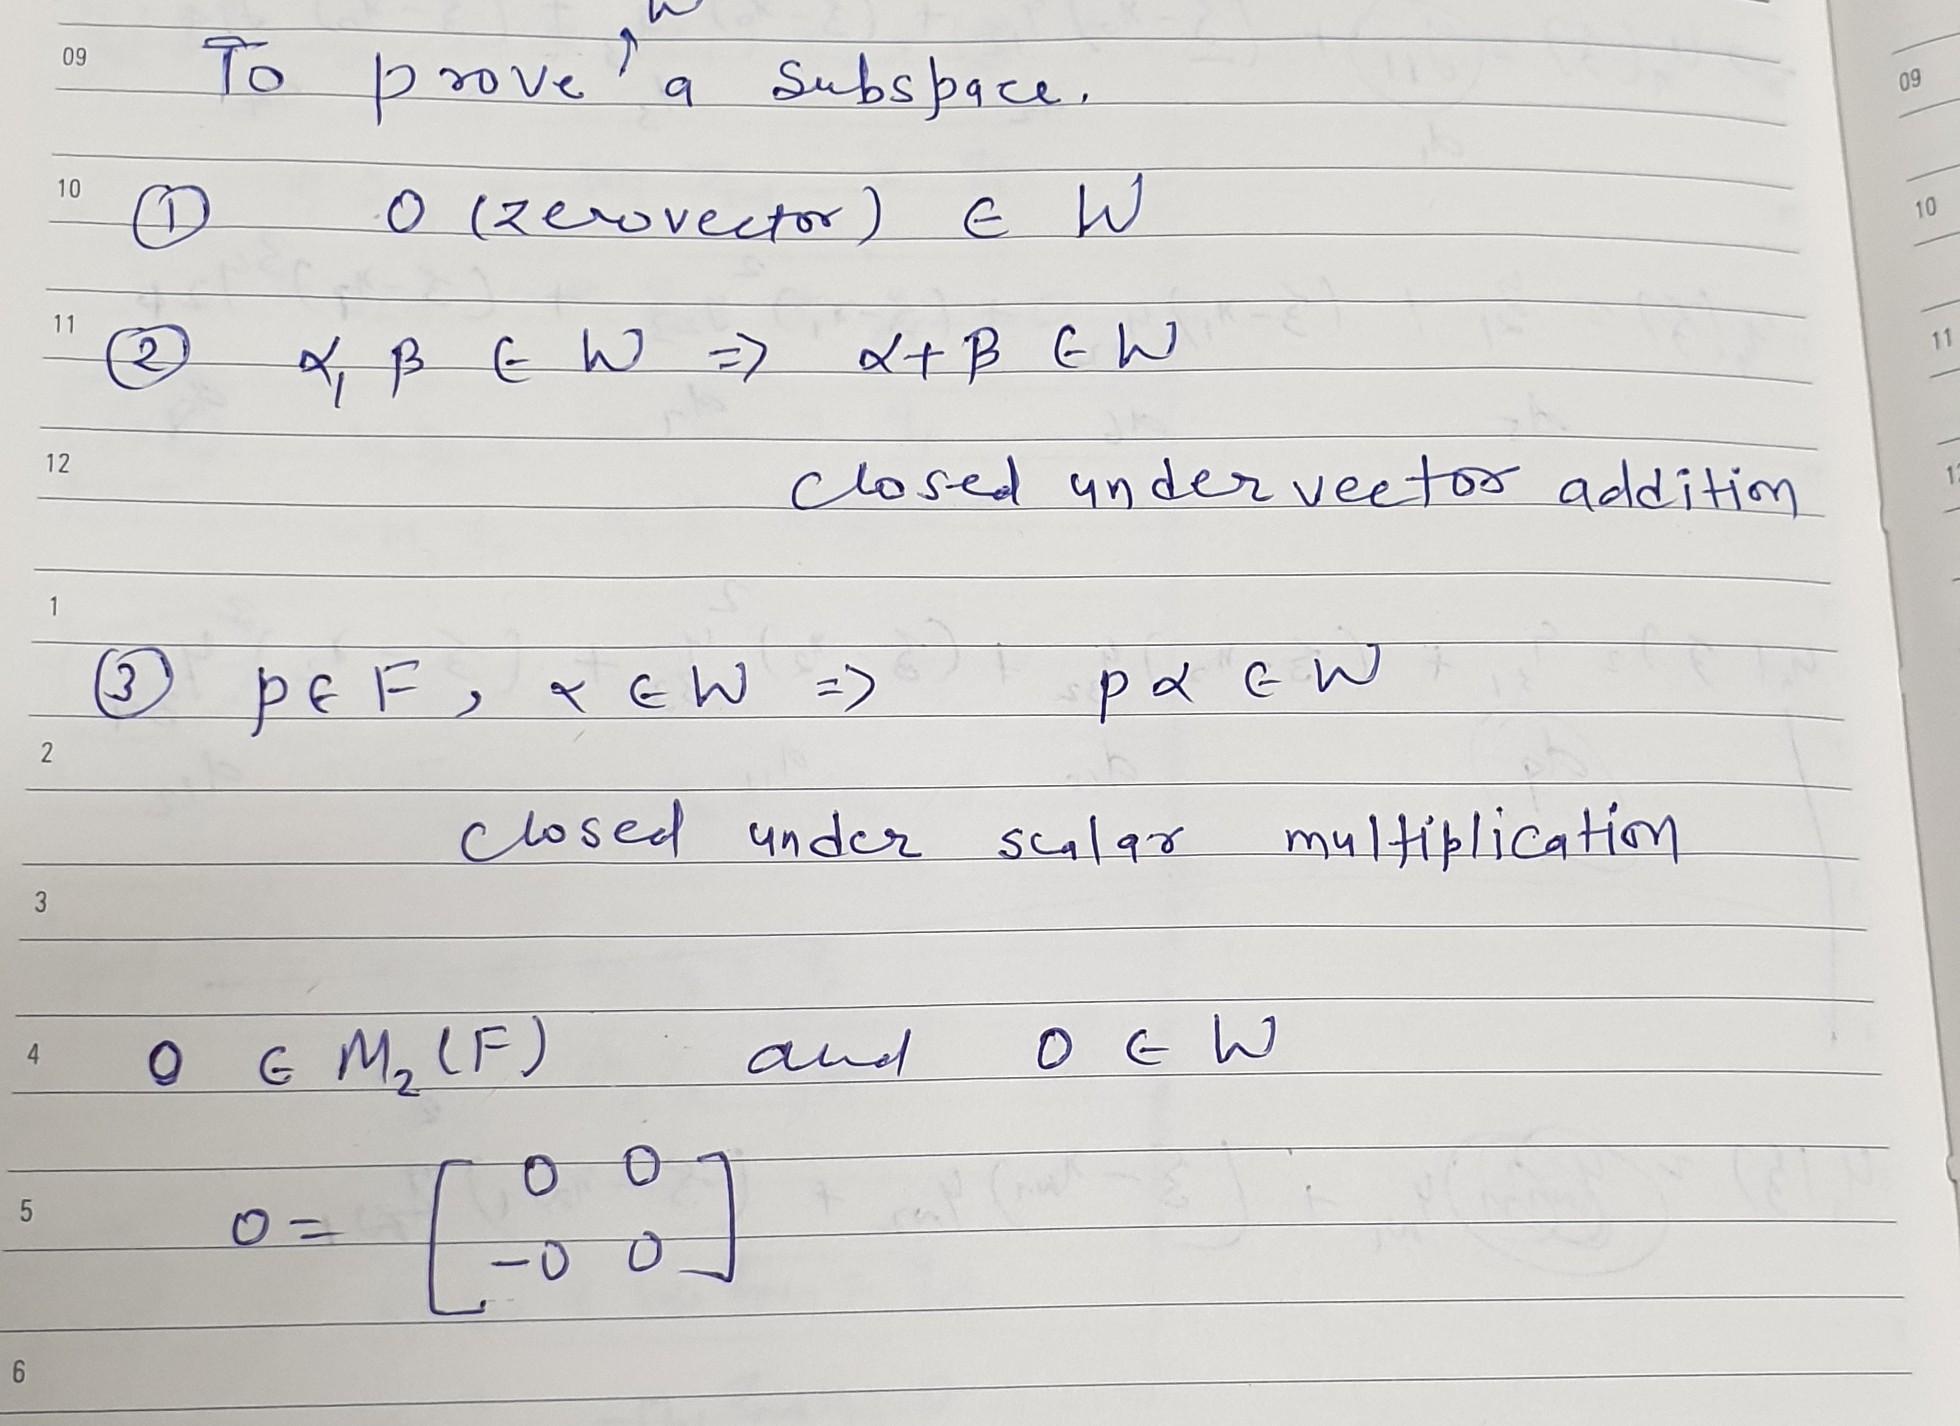 W
09 To prove ↑ a subspace.
10 ① 0 (zero vector) ∈ W
11 ② α, β ∈ W => α+β ∈ W
12 closed under vector addition
1
③ p ∈ F, α ∈ W => pα ∈ W
2
closed under scalar multiplication
3
4 0 ∈ M₂(F) and 0 ∈ W
5 0 = [0 0
-0 0]
6
09
10
11